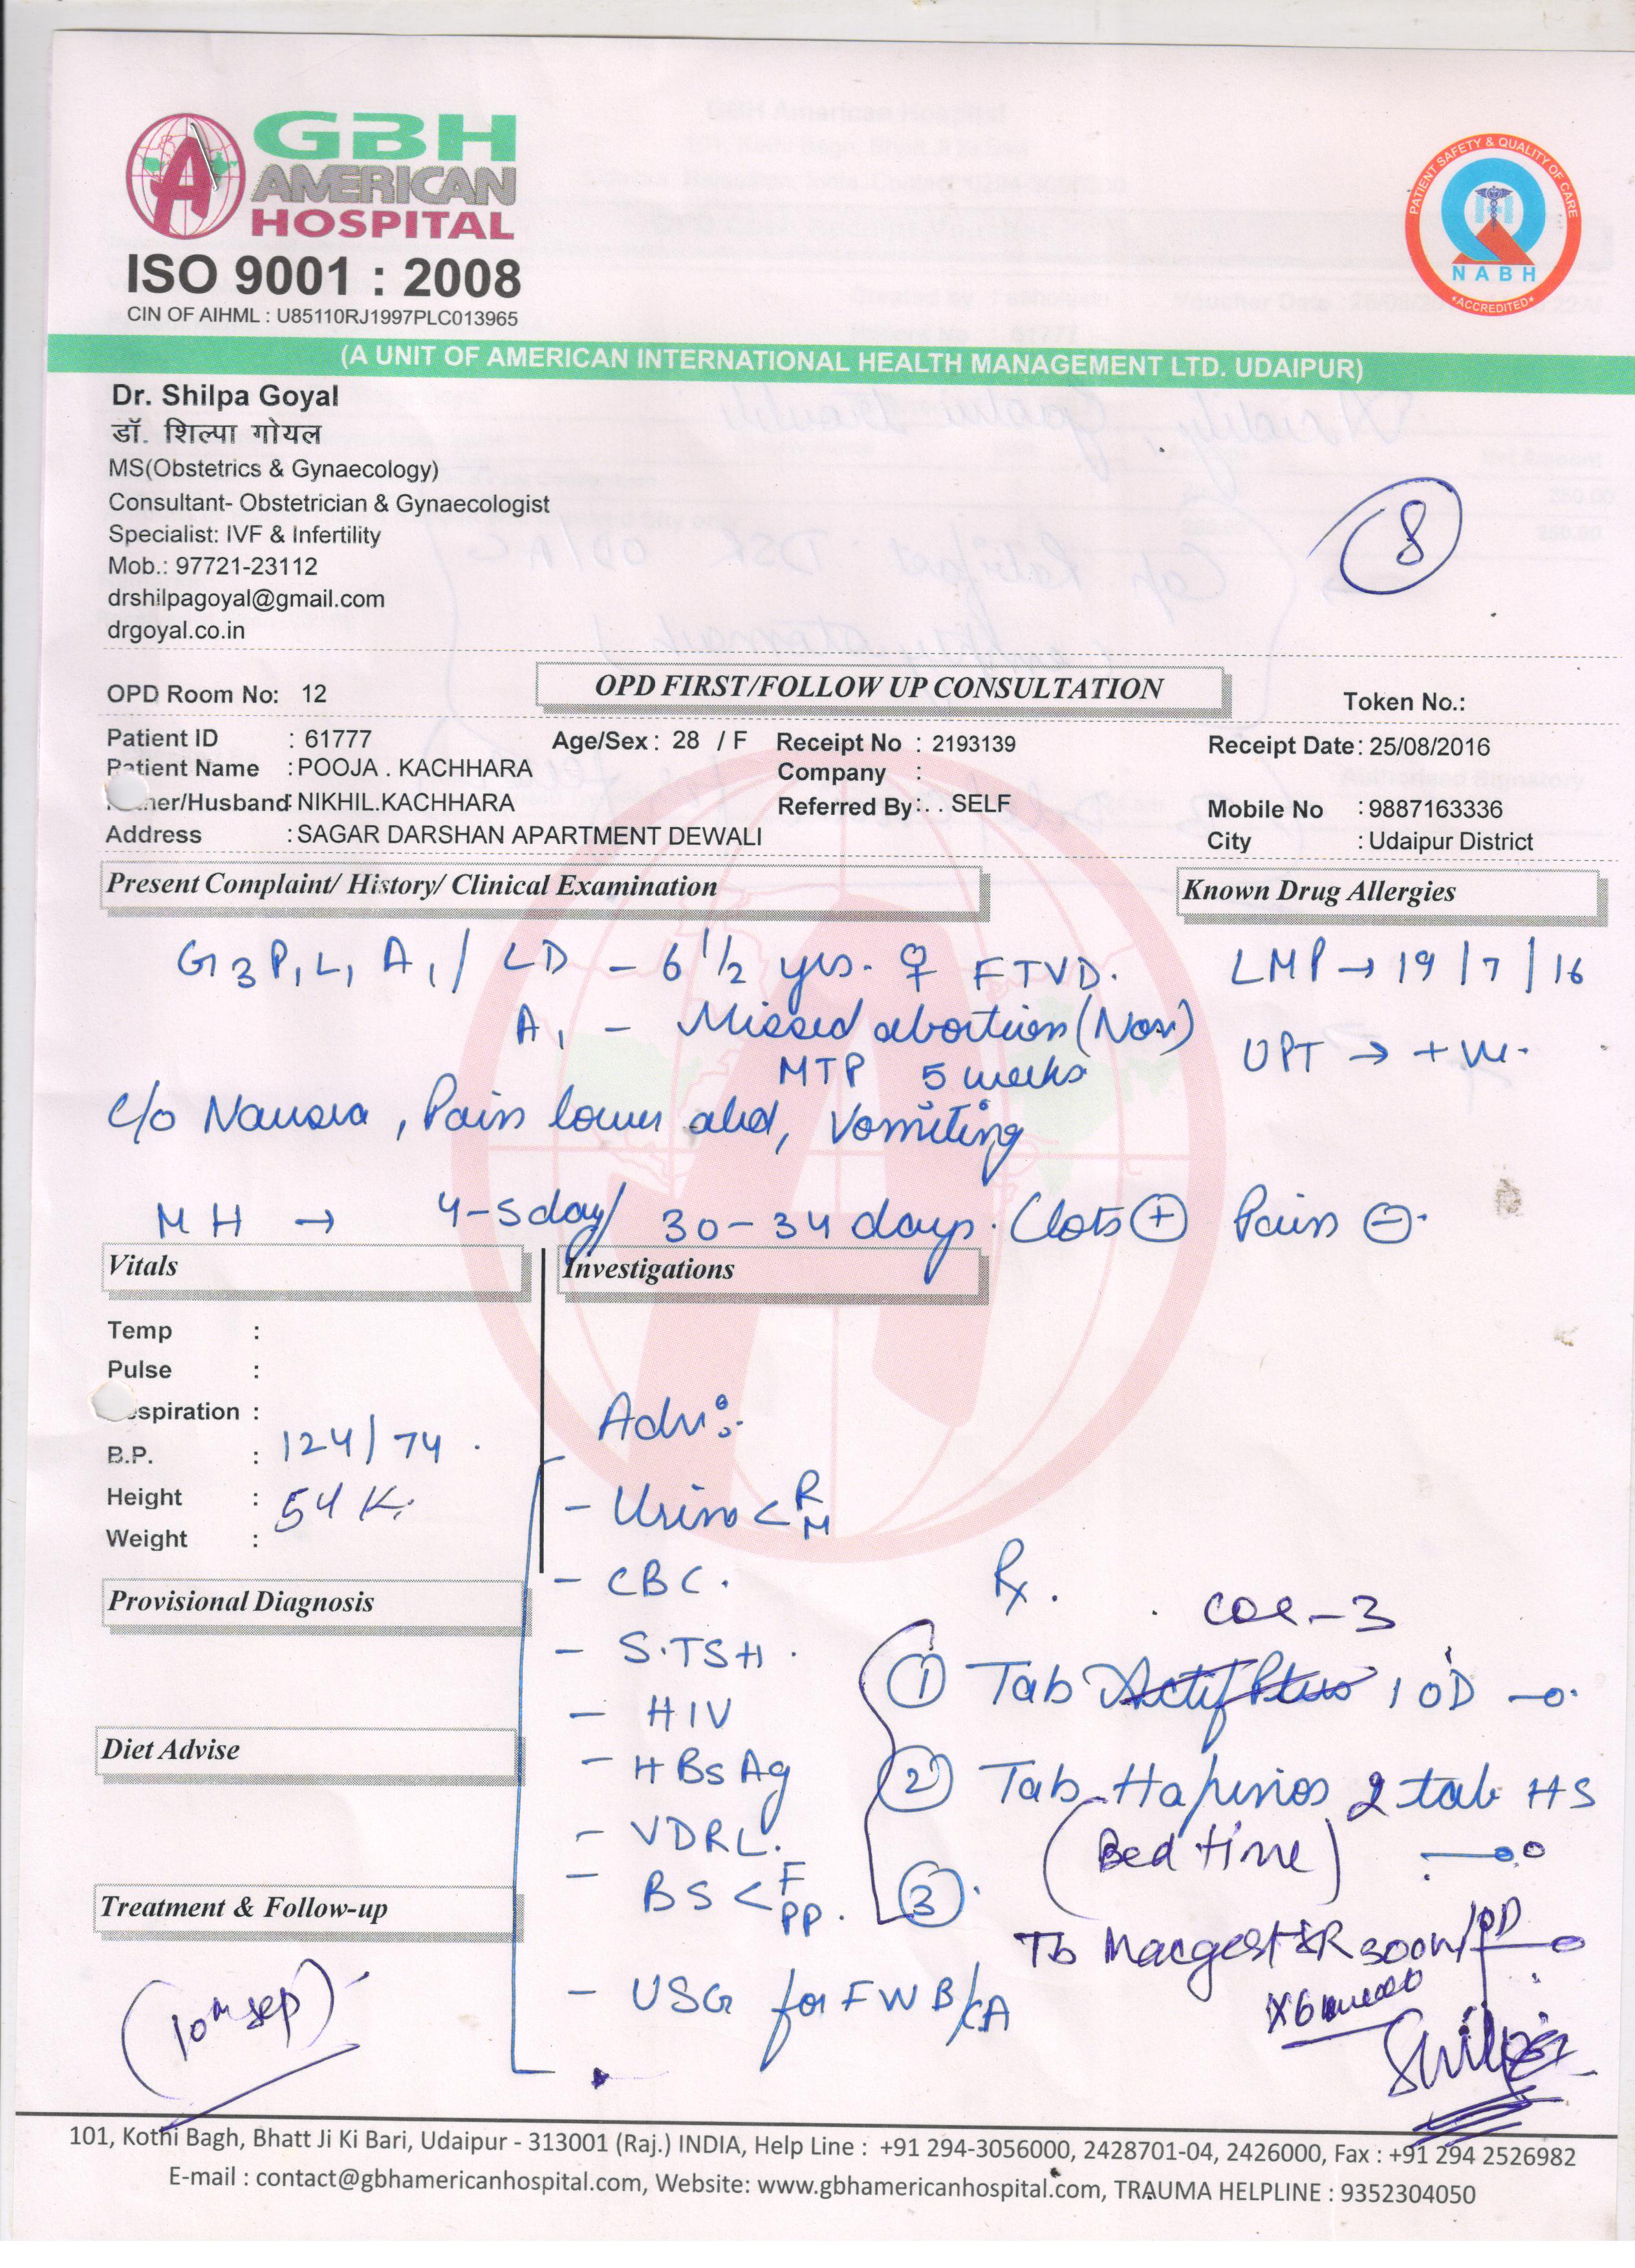 GBH
AMERICAN
HOSPITAL
ISO 9001 : 2008
CIN OF AIHML : U85110RJ1997PLC013965
PATIENT SAFETY & QUALITY OF CARE
NABH
ACCREDITED
(A UNIT OF AMERICAN INTERNATIONAL HEALTH MANAGEMENT LTD. UDAIPUR)
Dr. Shilpa Goyal
डॉ. शिल्पा गोयल
MS(Obstetrics & Gynaecology)
Consultant- Obstetrician & Gynaecologist
Specialist: IVF & Infertility
Mob.: 97721-23112
drshilpagoyal@gmail.com
drgoyal.co.in
8
OPD Room No: 12 OPD FIRST/FOLLOW UP CONSULTATION Token No.:
Patient ID : 61777 Age/Sex : 28 / F Receipt No : 2193139 Receipt Date: 25/08/2016
Patient Name : POOJA . KACHHARA Company :
her/Husband: NIKHIL.KACHHARA Referred By: . . SELF Mobile No : 9887163336
Address : SAGAR DARSHAN APARTMENT DEWALI City : Udaipur District
Present Complaint/ History/ Clinical Examination Known Drug Allergies
G3 P1 L1 A1 / LD - 6 1/2 yrs. ♀ FTVD. LMP → 19/7/16
A1 - Missed abortion (Nov)
MTP 5 weeks UPT → +ve.
c/o Nausea, Pain lower abd, Vomiting
MH → 4-5 day/ 30-34 days. Clots ⊕ Pain ⊖.
Vitals Investigations
Temp :
Pulse :
spiration :
B.P. : 124/74
Height : 54 K
Weight :
Provisional Diagnosis
Diet Advise
Treatment & Follow-up
(10th Sep)
Adv:-
- Urine < R M
- CBC.
- S.TSH.
- HIV
- HBsAg
- VDRL.
- BS < F PP.
- USG for FWB/CA
Rx.
① Tab 1 OD
② Tab 2 tab HS
(Bed time)
③
Shilpa
101, Kothi Bagh, Bhatt Ji Ki Bari, Udaipur - 313001 (Raj.) INDIA, Help Line : +91 294-3056000, 2428701-04, 2426000, Fax : +91 294 2526982
E-mail : contact@gbhamericanhospital.com, Website: www.gbhamericanhospital.com, TRAUMA HELPLINE : 9352304050